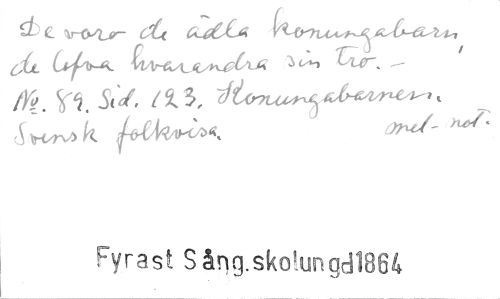 De voro de ädla konungabarn,
de lofva hvarandra sin tro. –
No. 89. Sid. 123. Konungabarnen.
Svensk folkvisa. mel-not.
Fyrast Sång.skolungd1864